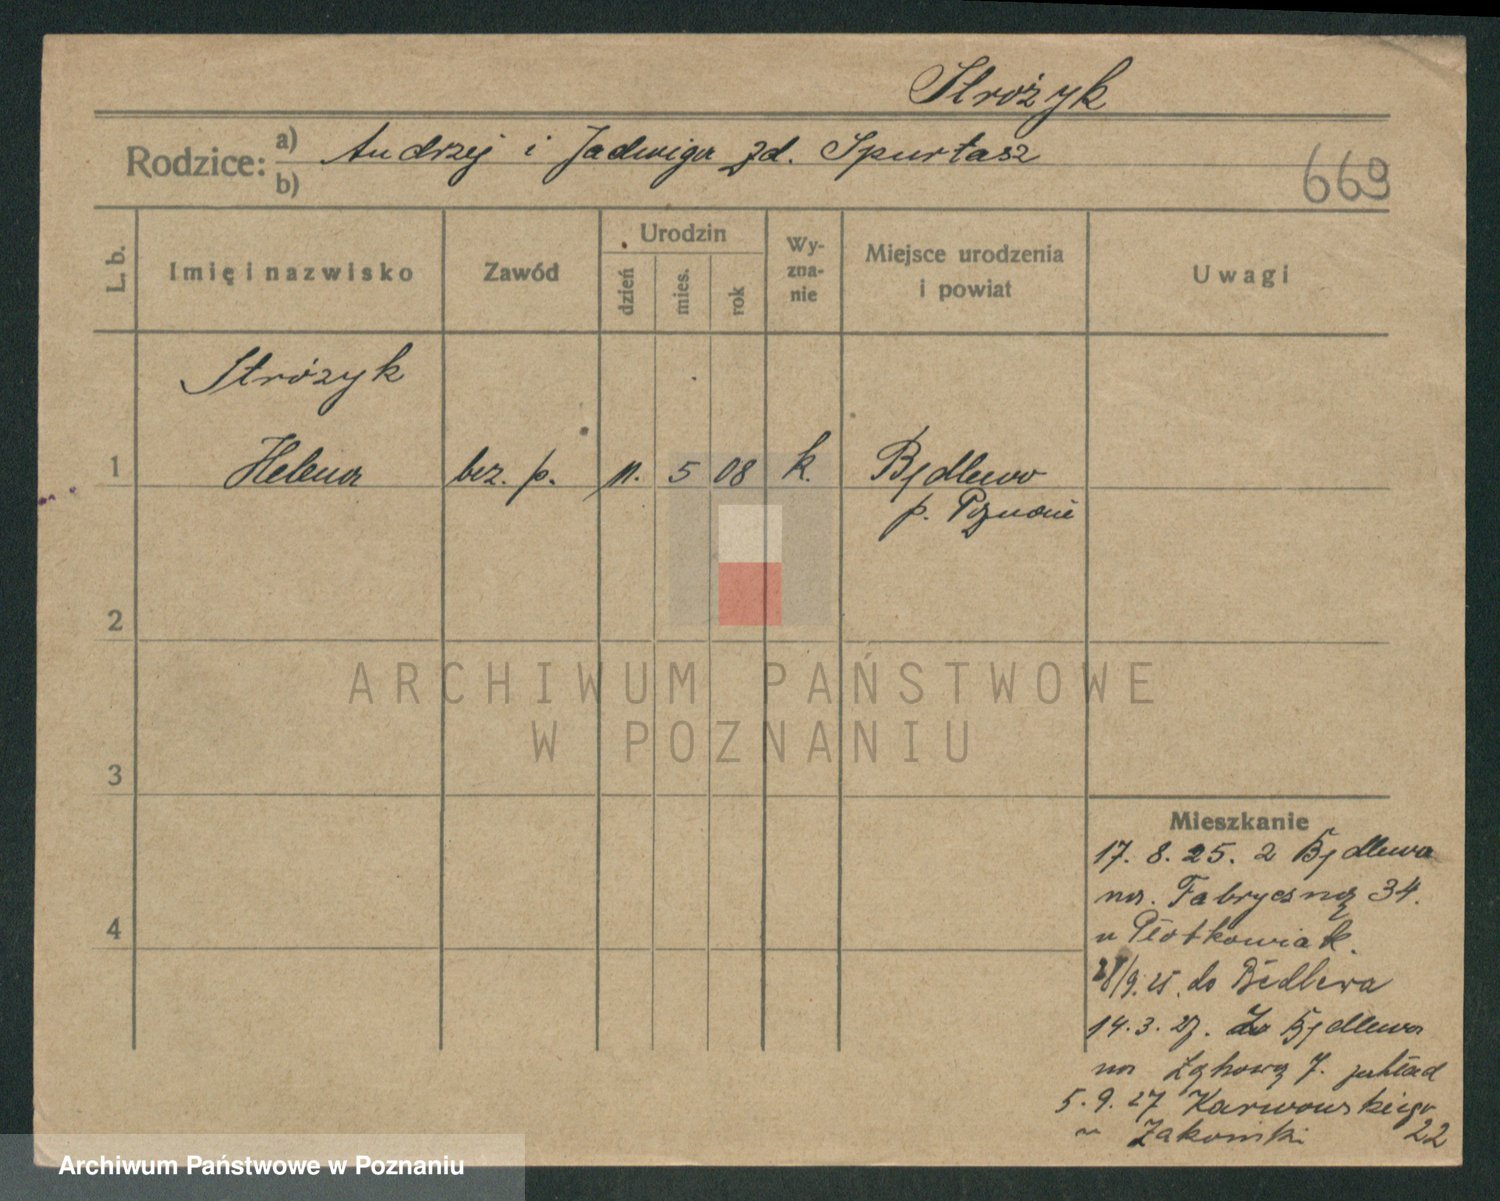 Stróżyk
Rodzice: a) Andrzej i Jadwiga zd. Spurtasz
b)
669
L. b.
Imię i nazwisko
Zawód
Urodzin
dzień
mies.
rok
Wy-
zna-
nie
Miejsce urodzenia
i powiat
Uwagi
Stróżyk
1 Helena bez. p. 11. 5 08 k. Będlewo
p. Poznań
2
ARCHIWUM PAŃSTWOWE
W POZNANIU
3
4
Mieszkanie
17. 8. 25. z Będlewa
na. Fabryczną 34.
u Płotkowiak.
28/9. 25. do Będlewa
14. 3. 27. Z Będlewa
na Łąkową 7.
5. 9. 27 Karwowskiego
u 22
Archiwum Państwowe w Poznaniu